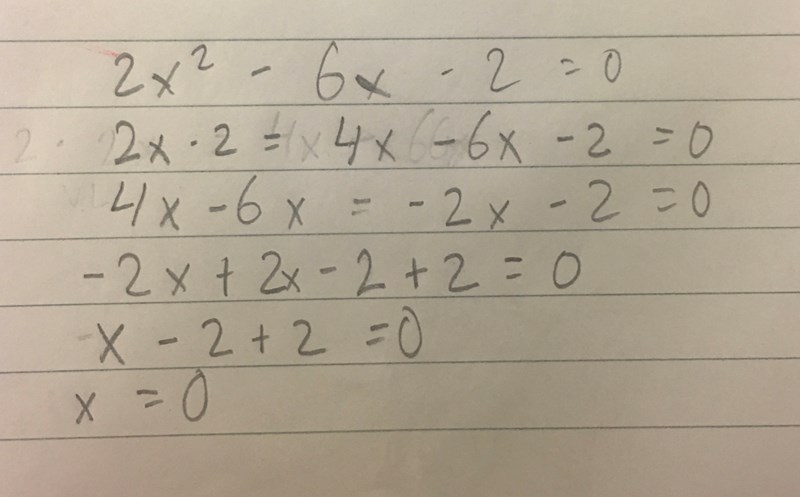 2x² - 6x - 2 = 0
2x · 2 = 4x - 6x - 2 = 0
4x - 6x = -2x - 2 = 0
-2x + 2x - 2 + 2 = 0
x - 2 + 2 = 0
x = 0